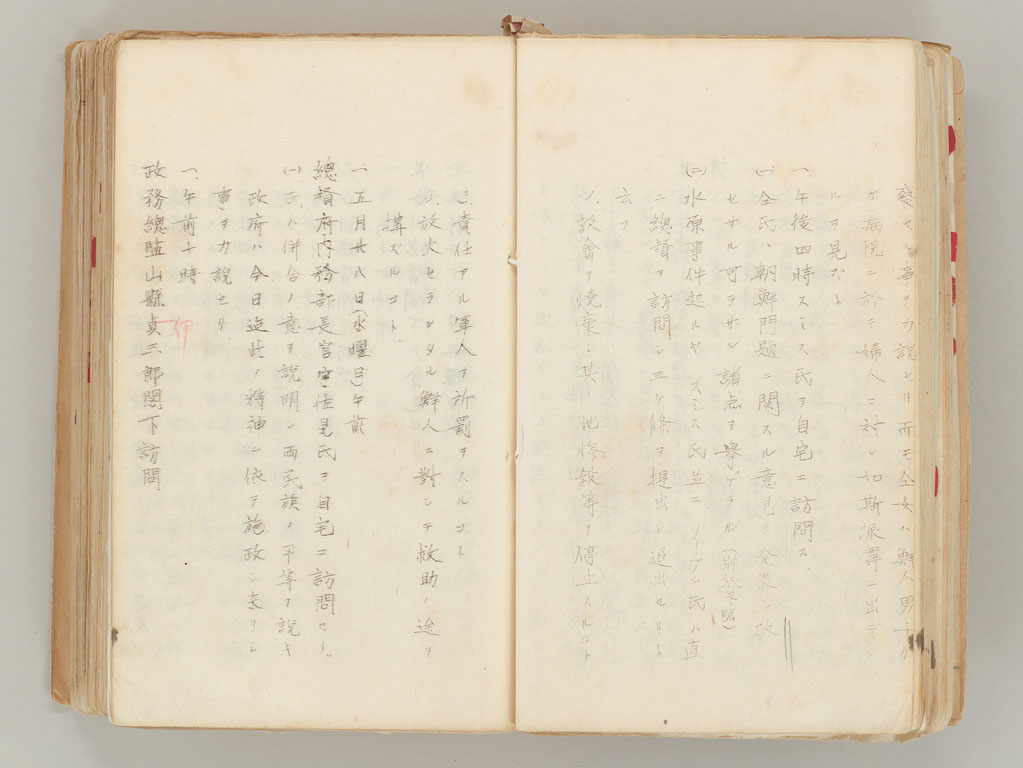 察セル事ヲ力説セリ而モ全女ハ鮮人男子ガ
ガ病院ニ於テ婦人ニ対シ如斯派
ルヲ見ズト
一、午後四時スミス氏ヲ自宅ニ訪問ス、
(一)仝氏ハ朝鮮問題ニ関スル意見ヲ発表シ改
セザル可ラザル諸点ヲ挙ゲラル(別紙参照)
(二)水原事件起ルヤ スミス氏並ニノーブル氏ハ直
ニ總督ヲ訪問シ三ケ條ヲ提出シ退出セリト
云フ
教會ヲ焼棄シ其他惨殺等ヲ停止スルコト
責任アル軍人ヲ所罰ヲスルコト
放火セラレタル鮮人ニ對シテ救助ノ途ヲ
構ズルコト、
一、五月廿八日(水曜日)午前
總督府内務部長官宇佐見氏ヲ自宅ニ訪問セリ。
(一)氏ハ併合ノ意ヲ説明シ両民族ノ平等ヲ説キ
政府ハ今日迄此ノ精神ニ依テ施政シ来リシ
事ヲ力説セリ
一、午前十時
政務總監山縣
伊
三郎閣下訪問